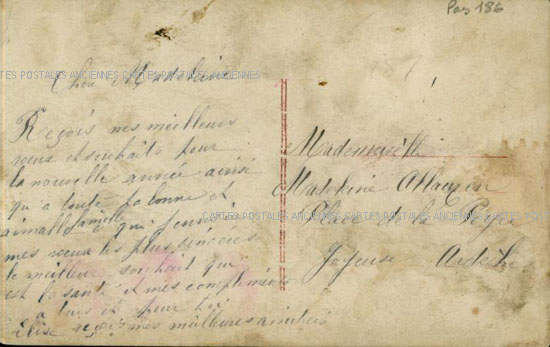 Pas 186
CARTES POSTALES ANCIENNES CARTES POSTALES ANCIENNES CARTES POSTALES ANCIENNES
Chère
Reçois mes meilleures
vœux et souhaits pour
la nouvelle année ainsi
qu a toute ta bonne et
aimable famille a qui
mes vœux les plus sincères
le meilleur souhait qui
est la santé et mes compliments
a tous et pour toi
Elise reçois mes meilleures amitiés
Mademoiselle
Place de la
Joyeuse Ardèche